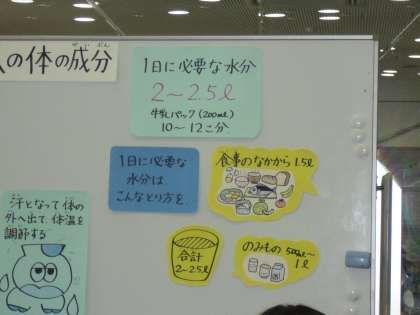 人の体の成分
1日に必要な水分
2〜2.5ℓ
牛乳パック(200ml)
10〜12こ分
1日に必要な
水分は
こんなとり方を
食事のなかから 1.5ℓ
汗となって体の
外へ出て、体温を
調節する
合計
2〜2.5ℓ
のみもの 500ml〜
1ℓ